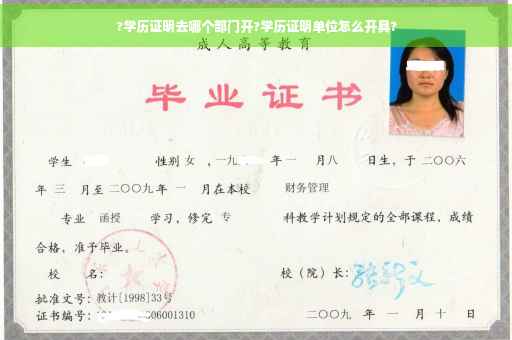 ?学历证明去哪个部门开?学历证明单位怎么开具?
成人高等教育
毕业证书
学生 性别 女 ，一九 年 一 月八 日生，于 二〇〇六
年 三 月至 二〇〇九年 一 月在本校 财务管理
专业 函授 学习，修完 专 科教学计划规定的全部课程，成绩
合格，准予毕业。
校 名： 校（院）长：
批准文号：教计[1998]33号
证书编号： 06001310 二〇〇九 年 一 月 十 日